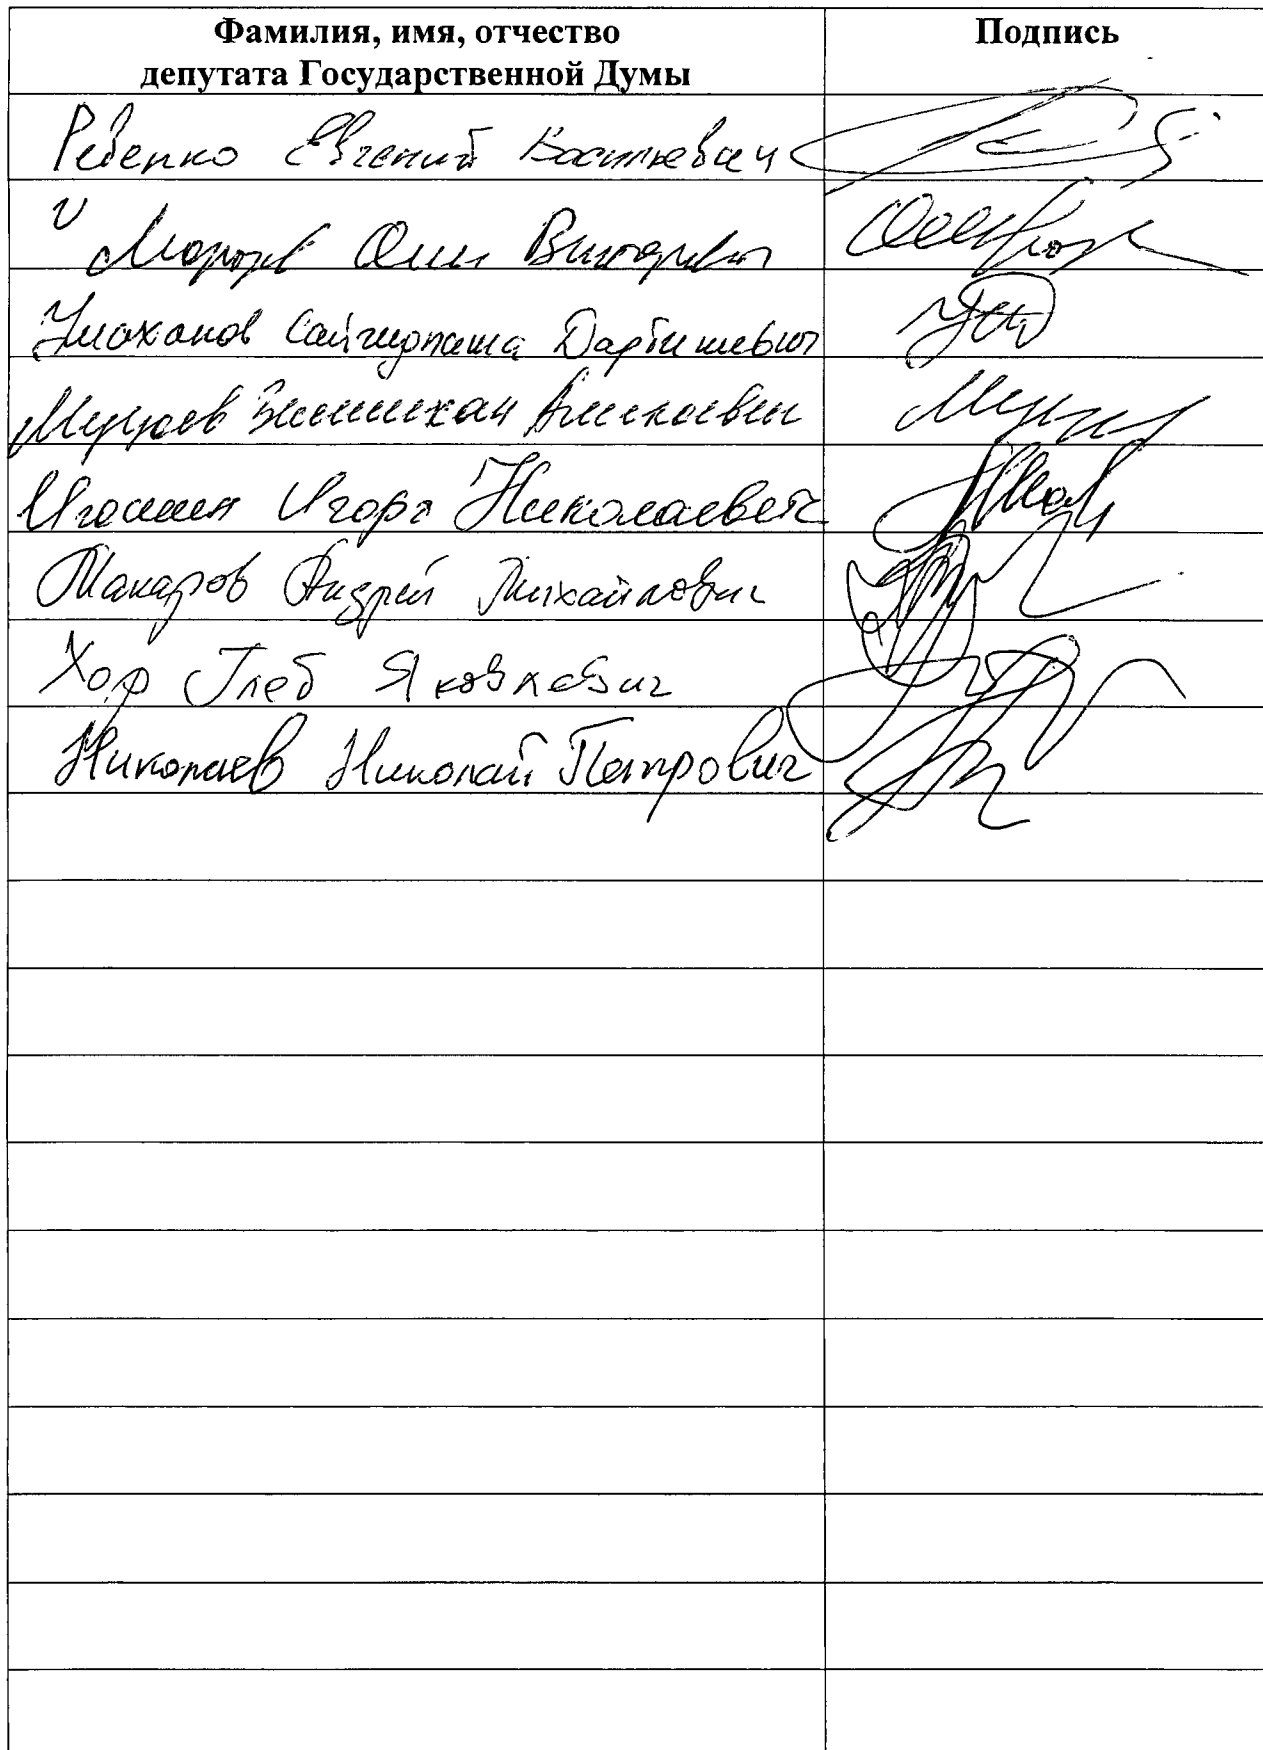 Фамилия, имя, отчество Подпись
депутата Государственной Думы
Ревенко Евгений Васильевич
Морозов Олег Викторович
Умаханов Сайгидпаша Дарбишевич
Муцоев Зелимхан Аликоевич
Игошин Игорь Николаевич
Макаров Андрей Михайлович
Хор Глеб Яковлевич
Николаев Николай Петрович